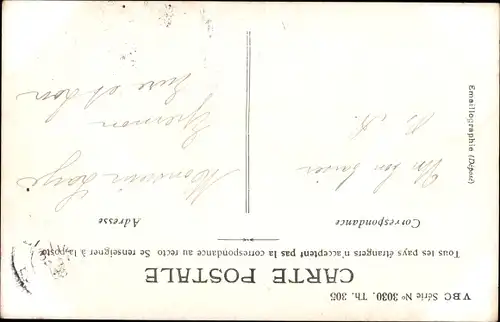 VBC Série Nº 3030. Th. 305
CARTE POSTALE
Tous les pays étrangers n'acceptent pas la correspondance au recto Se renseigner à la poste
Correspondance
Adresse
Un bon baiser
Monsieur
Epernon
Eure et Loir
Emaillographie (Déposé)